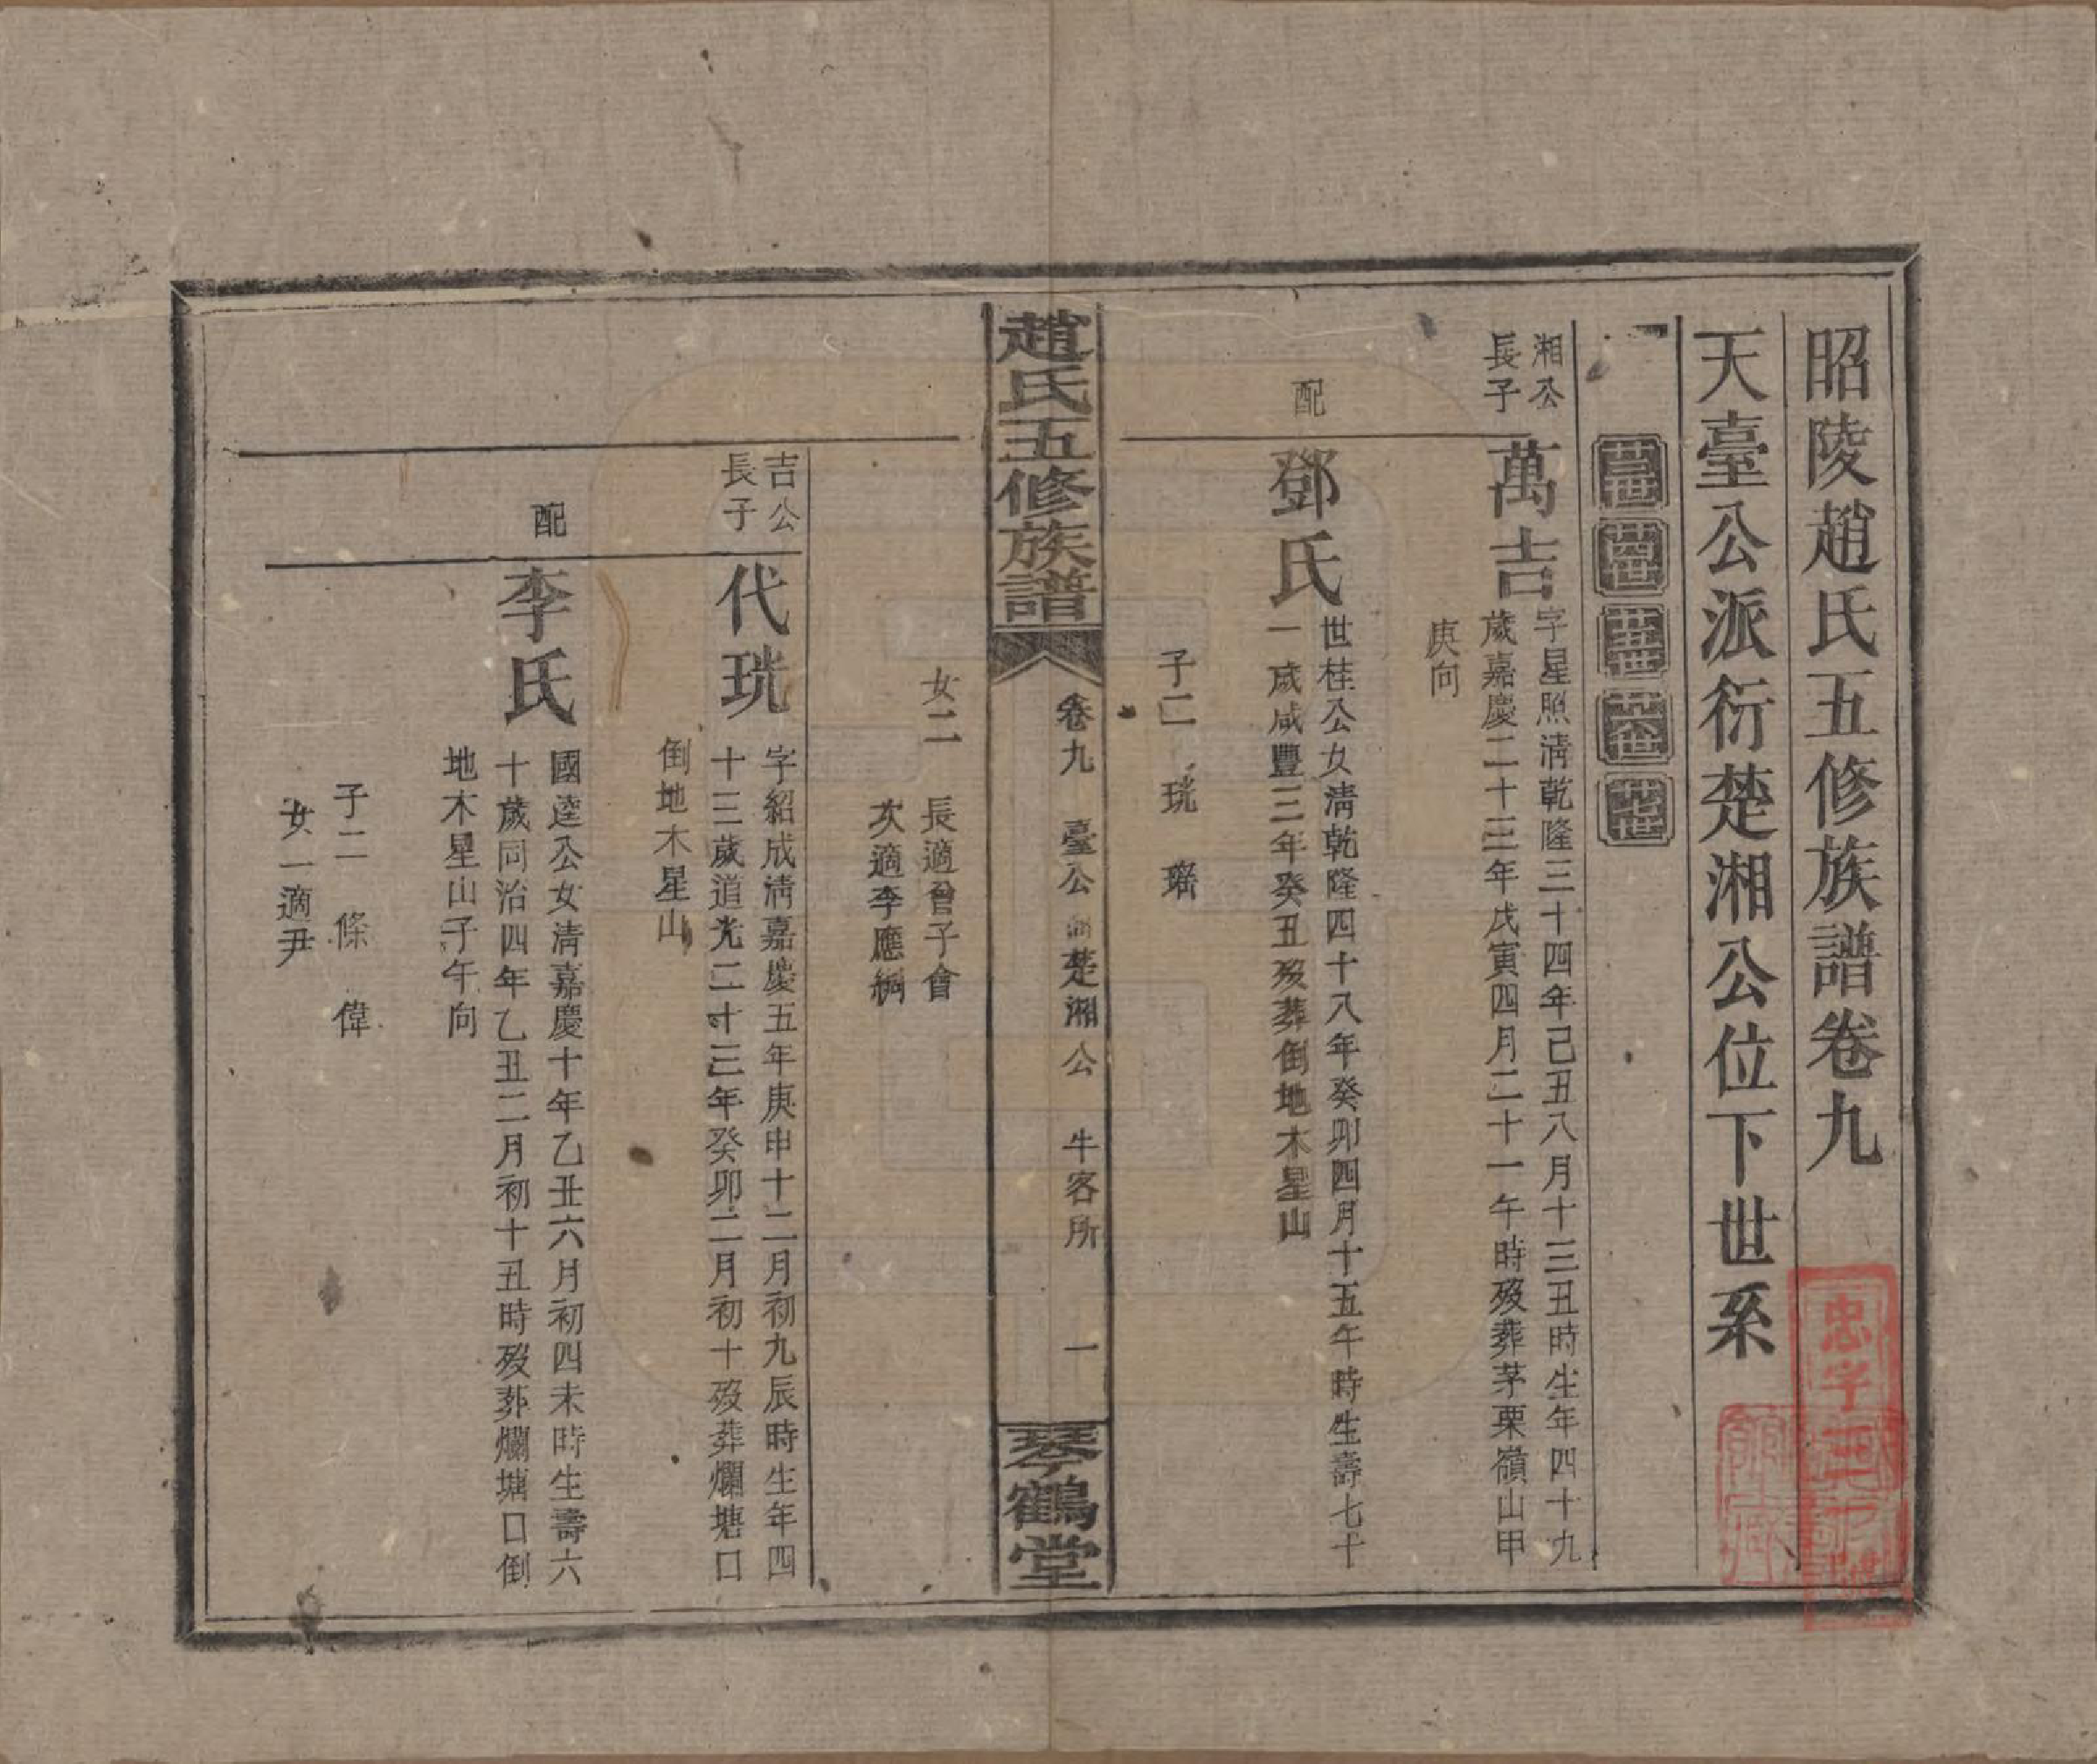 昭陵趙氏五修族譜卷九
天臺公派衍楚湘公位下世系
廿三世 廿四世 廿五世 廿六世 廿七世
湘公
長子
萬吉
字星照清乾隆三十四年己丑八月十三丑時生年四十九
歲嘉慶二十三年戊寅四月二十一午時歿葬茅栗嶺山甲
庚向
配
鄧氏
世桂公女清乾隆四十八年癸卯四月十五午時生壽七十
一歲咸豐三年癸丑歿葬倒地木星山
子二 珖 瑎
趙氏五修族譜
卷九 臺公 楚湘公 牛客所 一
琴鶴堂
女二 長適曾子會
次適李應綱
吉公
長子
代珖
字紹成清嘉慶五年庚申十二月初九辰時生年四
十三歲道光二十三年癸卯二月初十歿葬爛塘口
倒地木星山
配
李氏
國逵公女清嘉慶十年乙丑六月初四未時生壽六
十歲同治四年乙丑二月初十丑時歿葬爛塘口倒
地木星山子午向
子二 條 偉
女一適尹
忠字
號